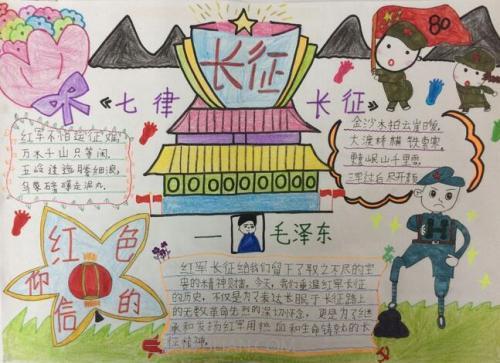 长征
80
《七律 长征》
红军不怕远征难,
万水千山只等闲,
五岭逶迤腾细浪,
乌蒙磅礴走泥丸,
金沙水拍云崖暖,
大渡桥横铁索寒,
更喜岷山千里雪,
三军过后尽开颜。
—毛泽东
红色
信仰的
红军长征给我们留下了取之不尽的宝
贵的精神财富。今天,我们重温红军长征
的历史,不仅是为了表达长眠于长征路上
的无数革命先烈的深切怀念,更是为了继
承和发扬红军用热血和生命铸就的长
征精神。